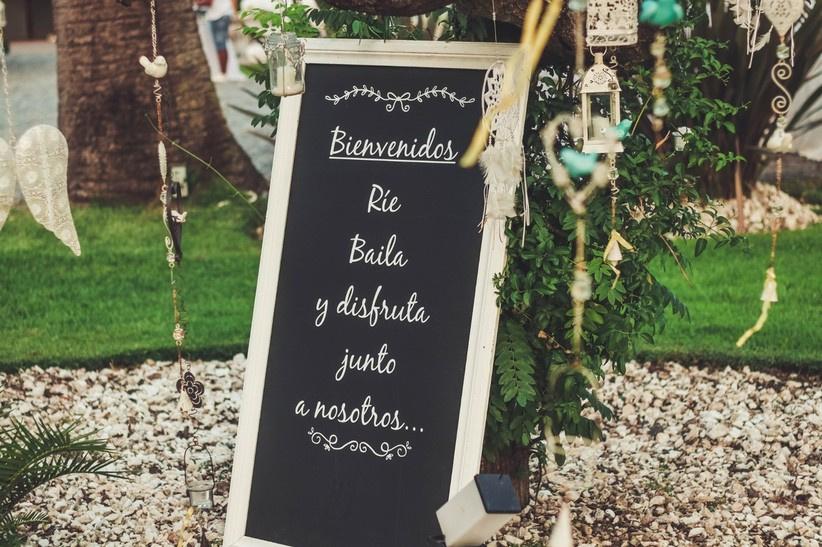 Bienvenidos
Ríe
Baila
y disfruta
junto
a nosotros...